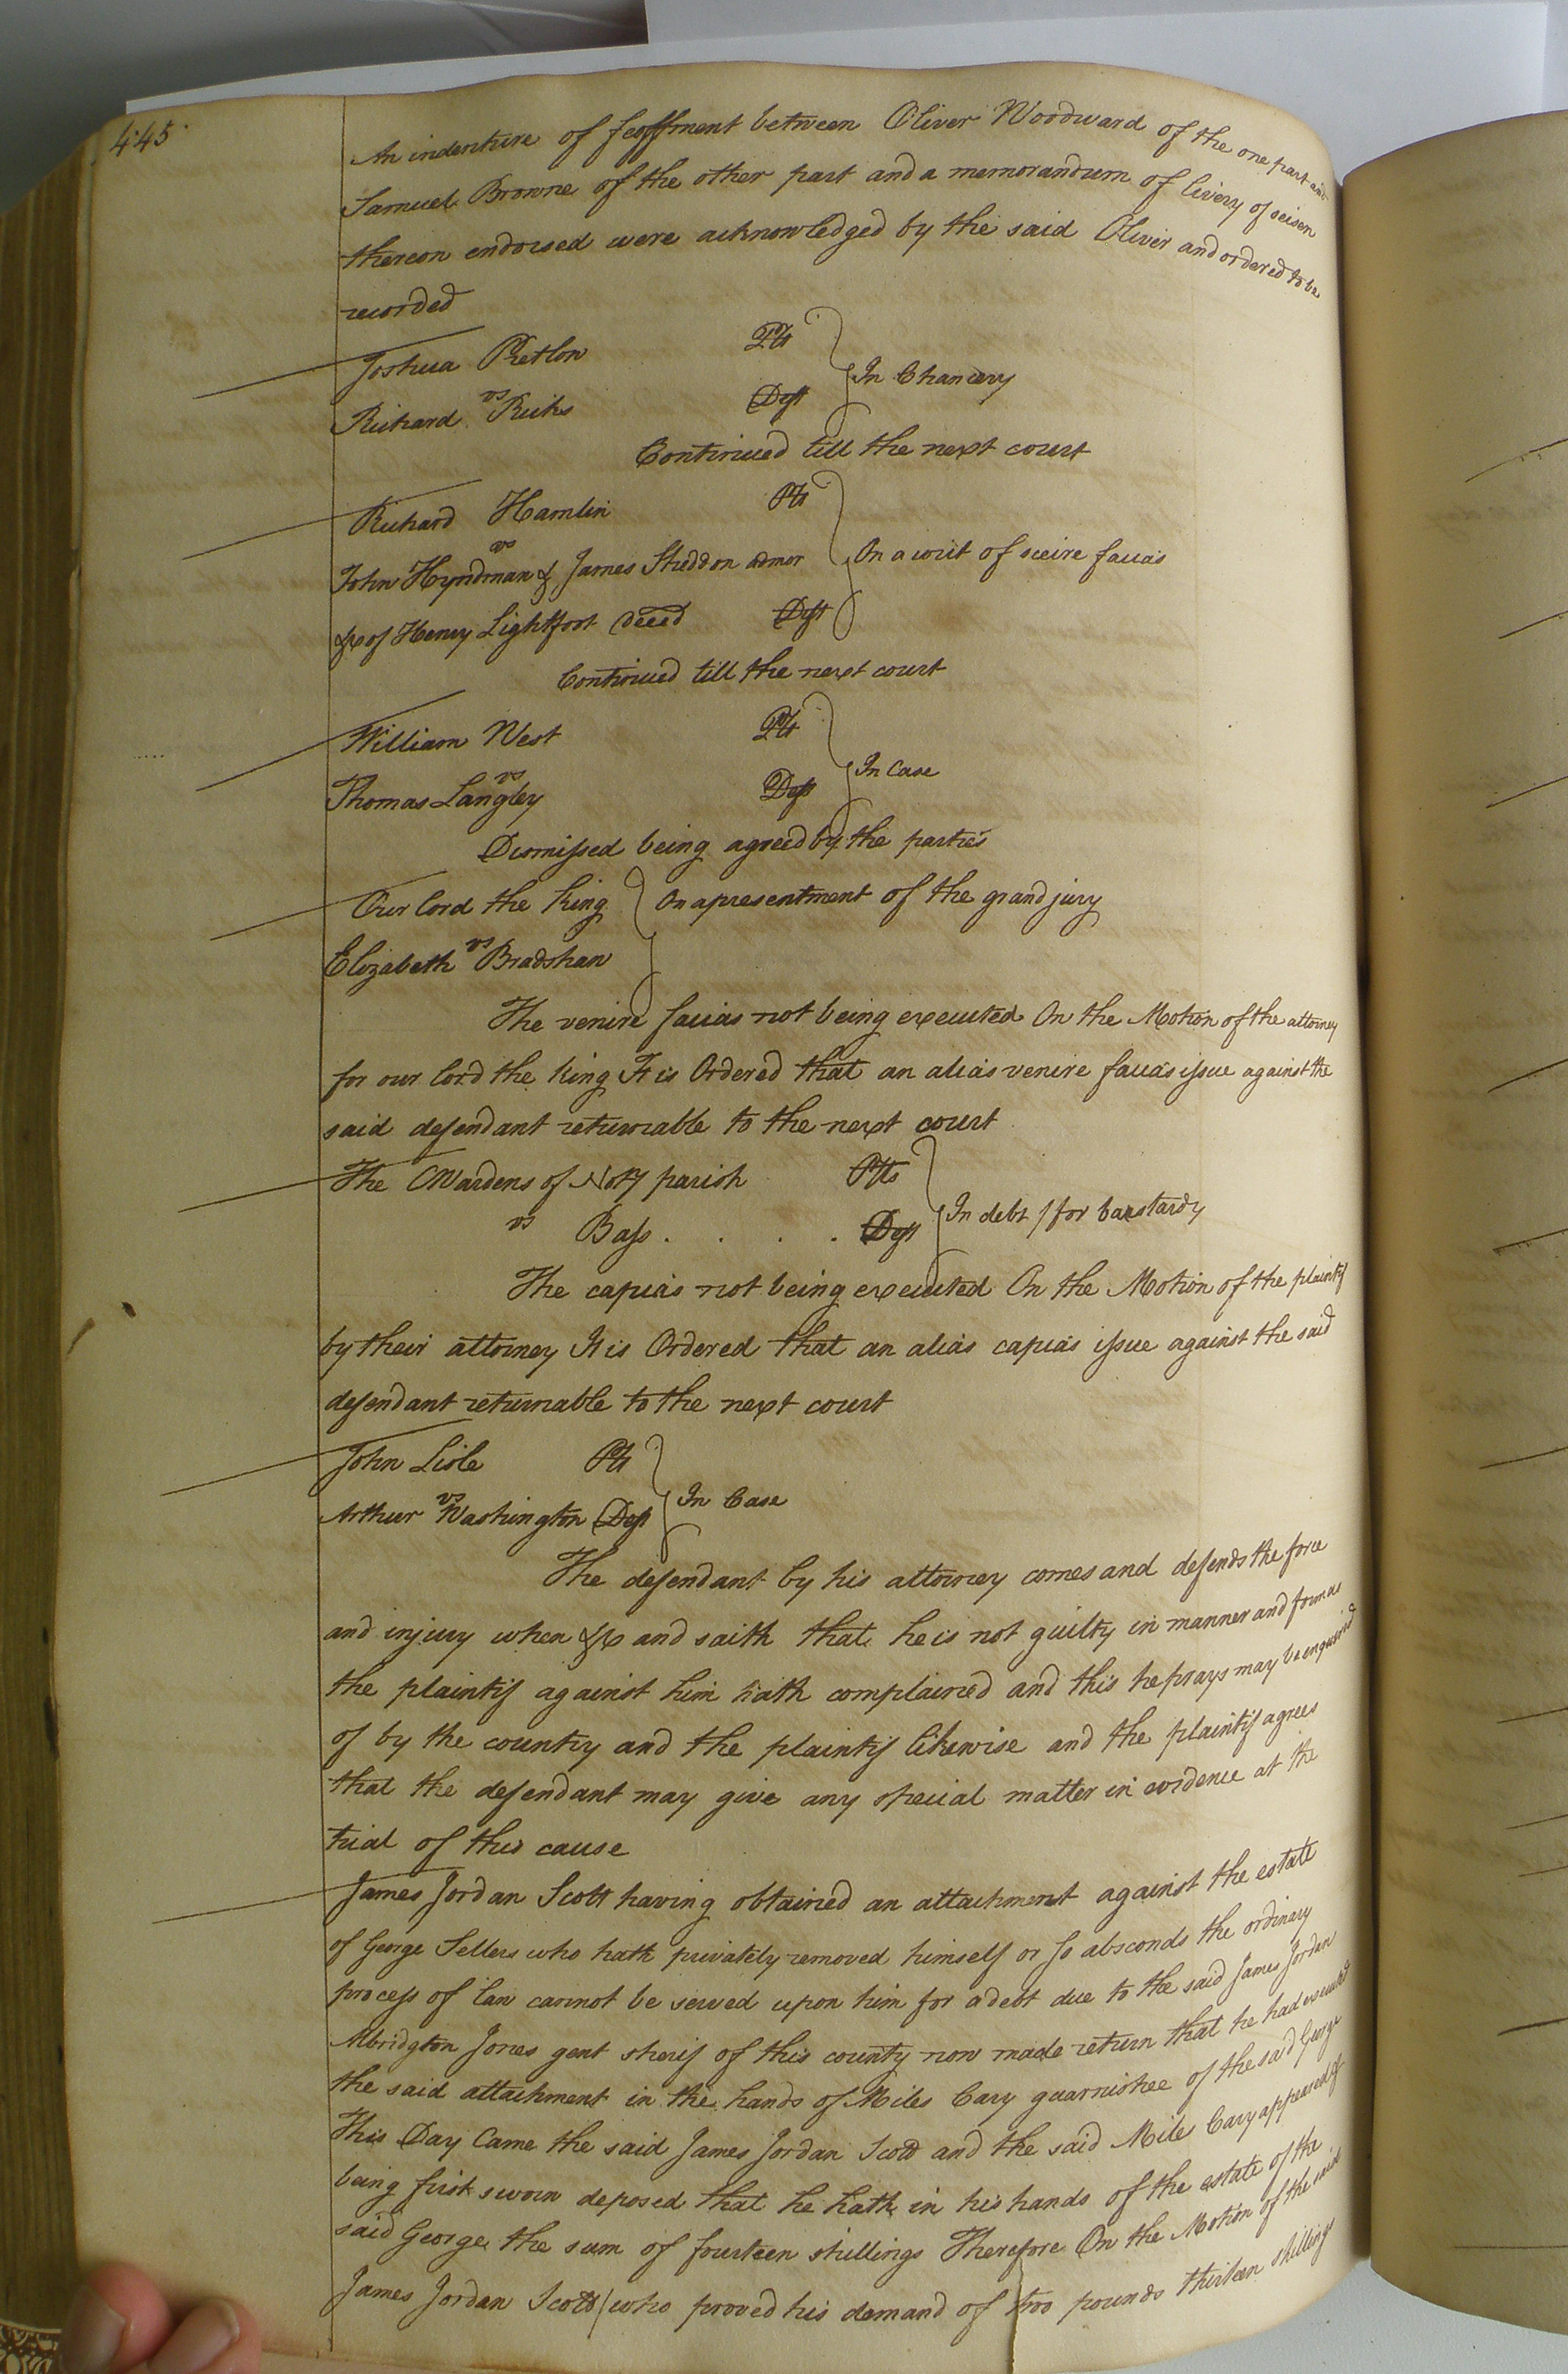 445
An indenture of feoffment between Oliver Woodward of the one part and
Samuel Browne of the other part and a memorandum of livery of seisen
thereon endorsed were acknowledged by the said Oliver and ordered to be
recorded
Joshua Pretlon Plt
vs In Chancery
Richard Ricks Deft
Continued till the next court
Richard Hamlin Plt
vs
John Hyndman & James Sheddon admor On a writ of scire facias
&c of Henry Lightfoot deced Deft
Continued till the next court
William West Plt
vs In Case
Thomas Langley Deft
Dismissed being agreed by the parties
Our lord the King On a presentment of the grand jury
vs
Elizabeth Bradshaw
The venire facias not being executed On the Motion of the attorney
for our lord the King It is Ordered that an alias venire facias issue against the
said defendant returnable to the next court
The CWardens of parish Plts
vs Bass . . . . Deft In debt / for bastardy
The capias not being executed On the Motion of the plaintif
by their attorney It is Ordered that an alias capias issue against the said
defendant returnable to the next court
John Lisle Plt
vs In Case
Arthur Washington Deft
The defendant by his attorney comes and defends the force
and injury when &c and saith that he is not guilty in manner and form as
the plaintif against him hath complained and this he prays may be enquired
of by the country and the plaintif likewise and the plaintif agrees
that the defendant may give any special matter in evidence at the
trial of this cause
James Jordan Scott having obtained an attachment against the estate
of George Sellers who hath privately removed himself or so absconds the ordinary
process of law cannot be served upon him for a debt due to the said James Jordan
Albridgton Jones gent sherif of this county now made return that he had executed
the said attachment in the hands of Miles Cary guarnishee of the said George
This Day Came the said James Jordan Scott and the said Miles Cary appeared &
being first sworn deposed that he hath in his hands of the estate of the
said George the sum of fourteen shillings Therefore On the Motion of the said
James Jordan Scott / who proved his demand of two pounds thirteen shillings